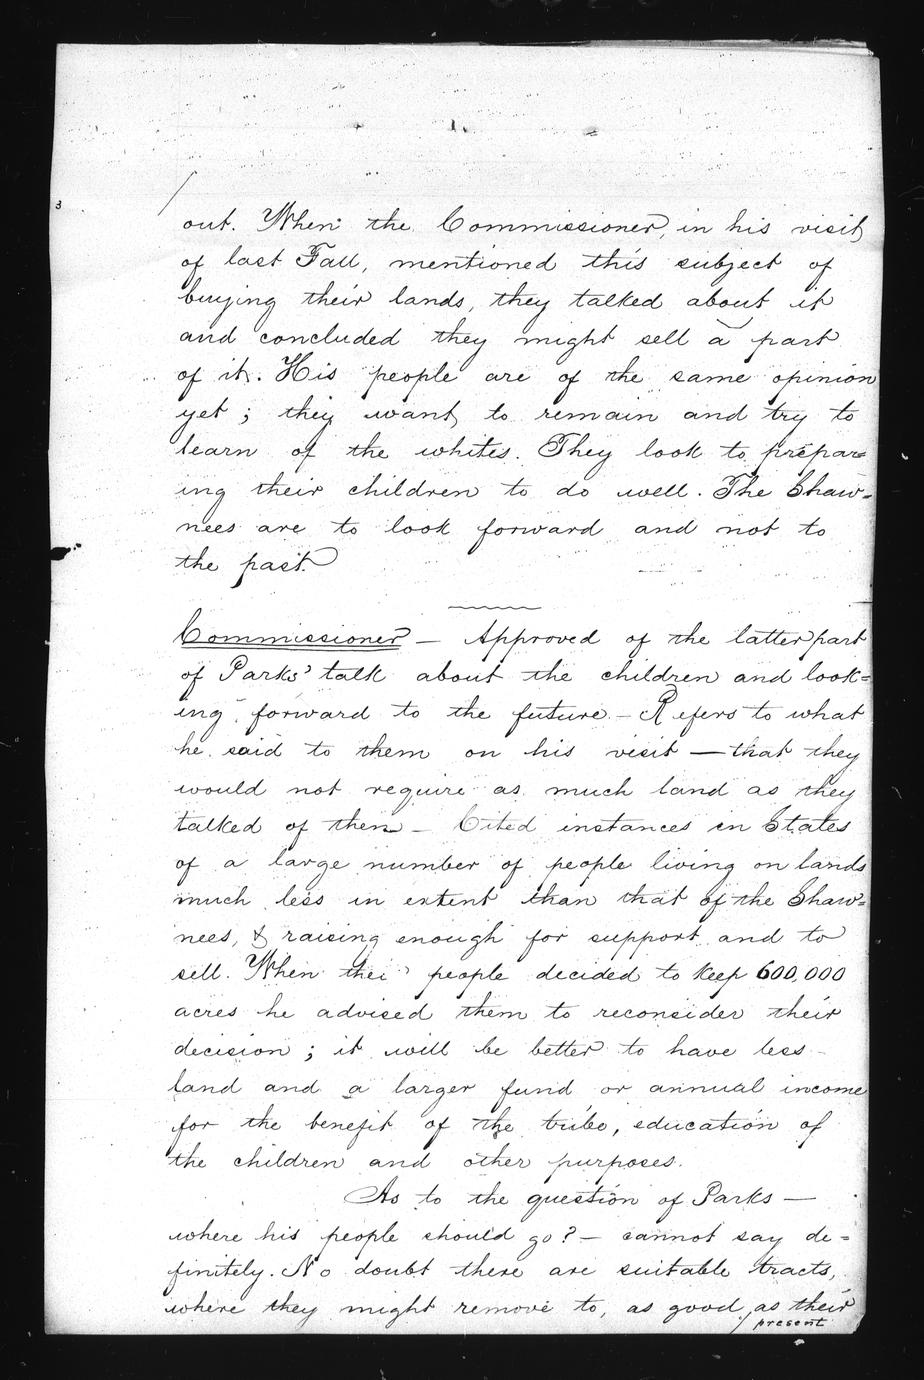 3
out. When the Commissioner, in his visit
of last Fall, mentioned this subject of
buying their lands, they talked about it
and concluded they might sell a part
of it. His people are of the same opinion
yet; they want to remain and try to
learn of the whites. They look to prepar=
ing their children to do well. The Shaw=
nees are to look forward and not to
the past.
Commissioner — Approved of the latter part
of Parks' talk about the children and look=
ing forward to the future — Refers to what
he said to them on his visit — that they
would not require as much land as they
talked of then — Cited instances in States
of a large number of people living on lands
much less in extent than that of the Shaw=
nees, & raising enough for support and to
sell. When their people decided to keep 600,000
acres he advised them to reconsider their
decision; it will be better to have less
land and a larger fund or annual income
for the benefit of the tribe, education of
the children and other purposes.
As to the question of Parks —
where his people should go? — cannot say de=
finitely. No doubt there are suitable tracts,
where they might remove to, as good as their
present